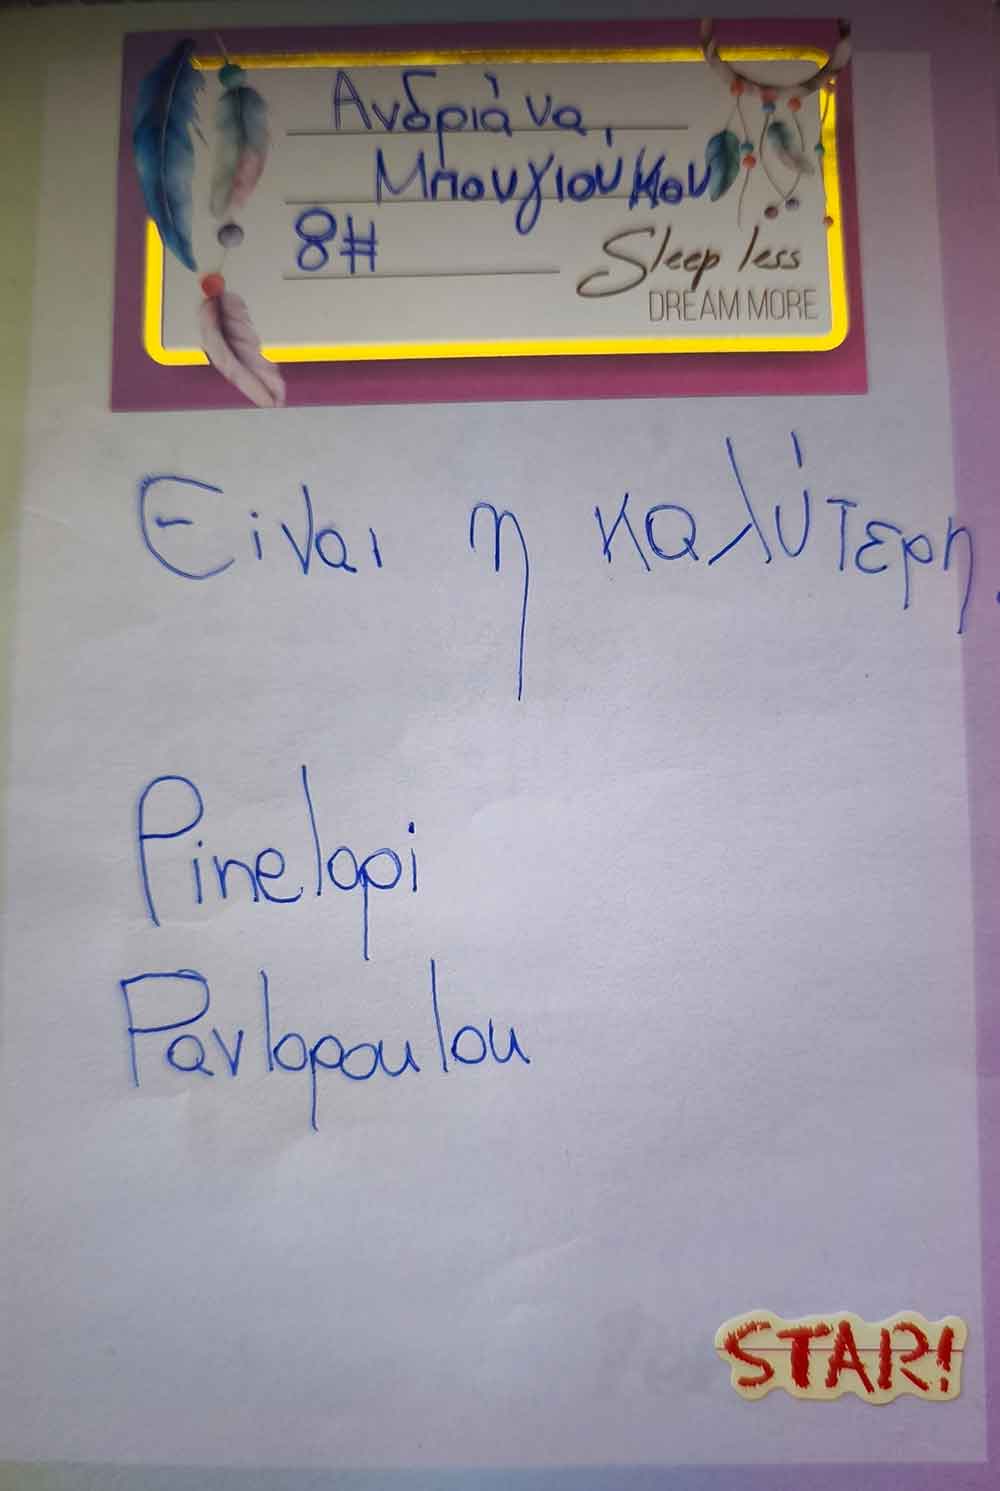 Ανδριάνα,
Μπουγιούκου
8#
Sleep less
DREAM MORE
Είναι η καλύτερη.
Pinelopi
Pavlopoulou
STAR!